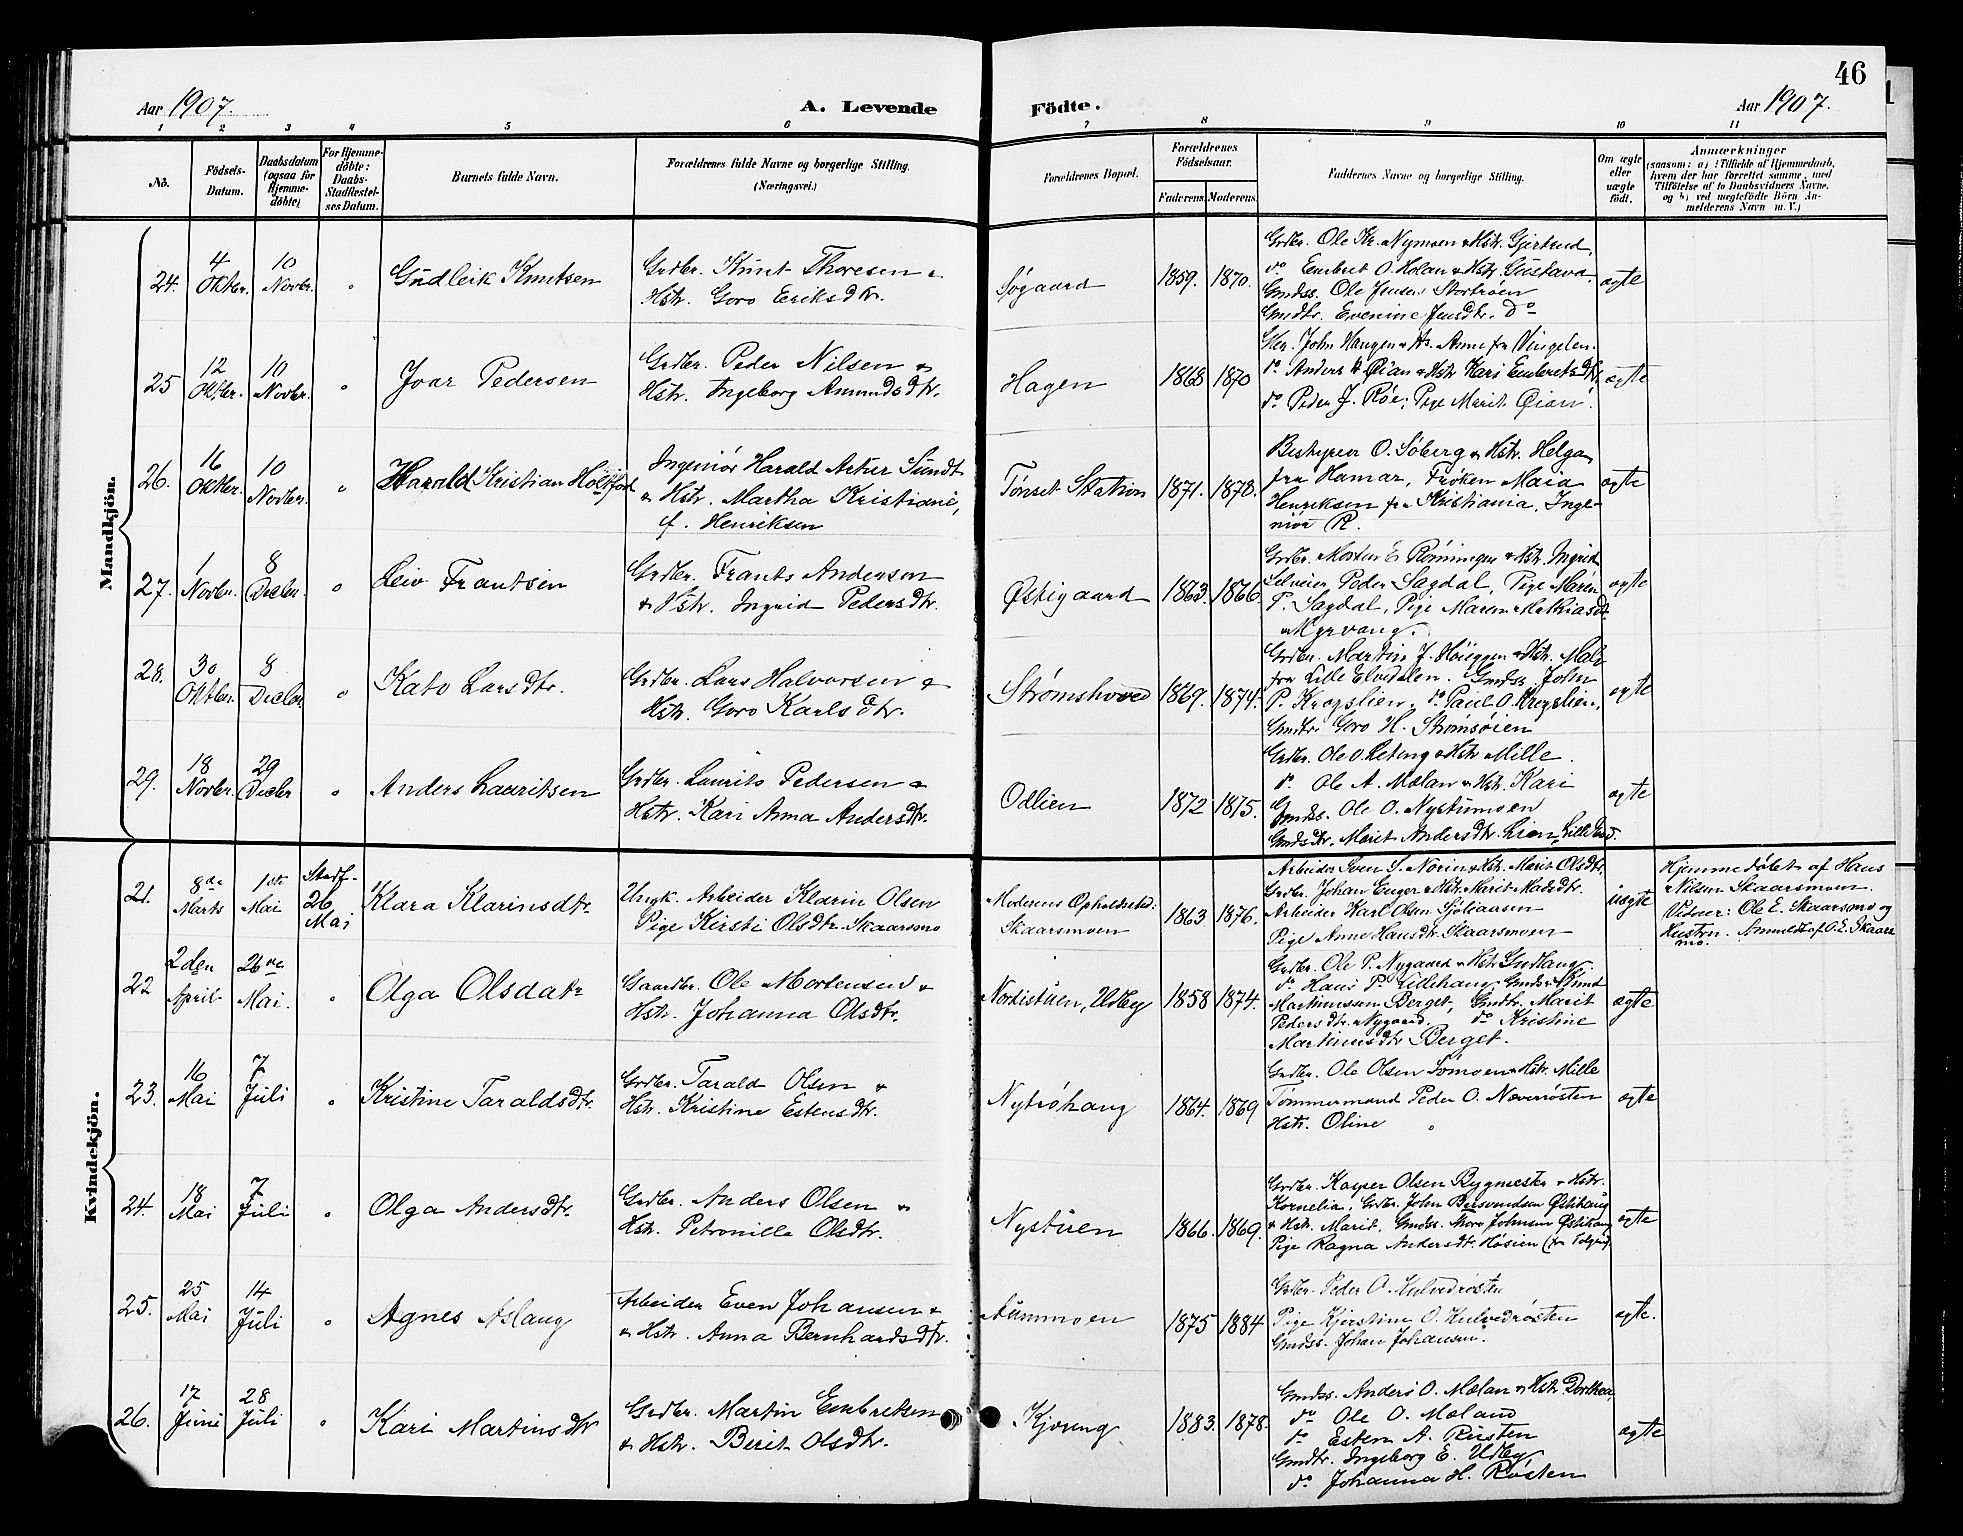 46
Aar 1907. A. Levende Födte. Aar 1907.
1 2 3 4 5 6 7 8 9 10 11
No.
Födsels-Datum.
Daabsdatum (ogsaa for Hjemme-döbte)
For Hjemme-döbte: Daabs-Stadfæstel-ses Datum.
Barnets fulde Navn.
Forældrenes fulde Navne og borgerlige Stilling. (Næringsvei.)
Forældrenes Bopæl.
Forældrenes Födselsaar.
Faderens Moderens
Faddernes Navne og borgerlige Stilling.
Om ægte eller uægte födt.
Anmærkninger
(saasom: a) i Tilfælde af Hjemmedaab, hvem der har forrettet samme, med Tilföielse af to Daabsvidners Navne, og b) ved uægtefödte Börn An-melderens Navn m. V.)
Mandkjön.
24. 4 Oktbr. 10 Novbr. " Gudleik Knutsen
Grdbr. Knut Thoresen &
Hstr. Goro Eriksdtr.
Søgaard 1859. 1870.
Grdbr. Ole Kr. Nymoen & Hstr. Gjertrud,
do Embret O. Holan & Hstr. Gustava.
Gmdss. Ole Jensen Stortrøen
Gmdtr. Evenine Jensdtr. do
ægte
25 12 Oktbr. 10 Novbr. " Ivar Pedersen
Grdbr. Peder Nilsen &
Hstr. Ingeborg Amundsdtr.
Hagen 1868 1870
John Haugen & Hs. Anne fra Vingelen.
do Anders Øian & Hstr Kari Embretsdtr,
do Peder J. Røe; Pige Marit Øian.
ægte
26. 16 Oktbr. 10 Novbr. " Harald Kristian Holtfod
Ingeniør Harald Artur Sundt
& Hstr. Martha Kristiane,
f. Henriksen
Tønset Station 1871. 1878.
Bestyrer O. Søberg & Hstr. Helga
fra Hamar, Frøken Maia
Henriksen fra Kristiania, Inge-
niør R.
ægte
27. 1 Novbr. 8 Decbr. " Leiv Frantsen
Grdbr. Frants Andersen
& Hstr. Ingrid Pedersdtr.
Østigaard 1863. 1866.
Grdbr. Morten E Rønningen & Hstr. Ingrid
Selveier Peder Sagdal, Pige Maren
P. Sagdal, Pige Maren Mathiasdtr
Myrvang.
ægte
28. 30 Oktbr. 8 Decbr. " Kato Larsdtr.
Grdbr. Lars Halvorsen &
Hstr. Goro Karlsdtr.
Strømshoved 1869. 1874.
Grdbr. Martin J. Høiggen & Hstr.
fra Lille Elvedalen. Gmdss. John
P. Krogslien. do Paul O. Krogslien,
Gmdtr Goro H. Strømsøien
ægte
29. 18 Novbr. 29 Decbr " Anders Lauritsen
Grdbr. Laurits Pedersen &
Hstr. Kari Anna Andersdtr.
Odlien 1872 1875.
Grdbr. Ole O. Leteng & Hstr Mille.
do Ole A. Mælan & Hstr. Kari
Gmdss. Ole O. Nystumoen
Gmdsdtr. Marit Andersdtr. Lien
ægte
Kvindekjön.
21. 8de Marts 1ste Mai Stadf. 26 Mai Klara Klarinsdtr
Ungk. Arbeider Klarin Olsen
Pige Kirsti Olsdtr. Skaarsmo
Moderens Opholdssted: Skaarsmoen 1863 1876.
Arbeider Sven S. Norin & Hstr. Marit Olsdtr.
Grdbr Johan Enger & Hstr. Marit Madsdtr.
Arbeider Karl Olsen Sjøliaasen
Pige Anne Hansdtr. Skaarsmoen
uægte
Hjemmedøbt af Hans
Nilsen Skaarsmoen.
Vidner: Ole E. Skaarsmo og
Hustru. Anmeldt af O. E. Skaars
mo.
22 2den April 26de Mai. " Olga Olsdatr
Gaardbr. Ole Mortensen &
Hstr. Johanna Olsdtr.
Nordistuen, Udby 1858 1874.
Grdbr. Ole P. Nygaard & Hstr Gudlaug,
do Hans P. Lillehaug Gmds Knud
Martinusen Berget, Gmdtr. Marit
Pedersdtr. Nygaard. do Kristine
Martinusdtr Berget.
ægte
23. 16 Mai 7 Juli " Kristine Taraldsdtr.
Grdbr. Tarald Olsen &
Hstr. Kristine Estensdtr.
Nytrøhaug 1864. 1869
Grdbr. Ole Olsen Tomoen & Hstr. Mille
Tømmermand Peder O. Næverøsten
Hstr. Oline "
ægte
24. 18 Mai 7 Juli " Olga Andersdtr.
Grdbr. Anders Olsen &
Hstr. Petronille Olsdtr.
Nystuen 1866. 1869.
Grdbr. Kasper Olsen Bygmester & Hstr.
Kornelia, Grdbr. John Bersvendsen Østihaug
& Hstr. Marit, Gmdss. Johnsen Østihaug
Pige Ragna Andersdtr. Høsien (fra Tolgen).
ægte
25. 25 Mai 14 Juli " Agnes Aslaug
Arbeider Even Johansen &
& Hstr. Anna Bernhardsdtr.
Aummoen 1875 1884
Grdbr. Peder O. Kulvedrøsten
Pige Kjerstine O. Kulvedrøsten
Gmdss. Johan Johansen.
ægte.
26. 17 Juni 28 Juli " Kari Martinsdtr
Grdbr. Martin Embretsen
& Hstr. Berit Olsdtr.
Kjøreng 1883. 1878.
Gmdss. Anders O. Mælan & Hstr Dorthea,
do Ole O. Mæland
do Esten A. Røsten
Gmdtr. Ingeborg E. Udby
do Johanna H. Røsten
ægte